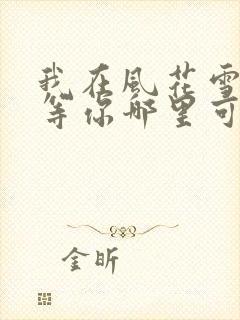 我在風花雪
等你哪里可
金昕